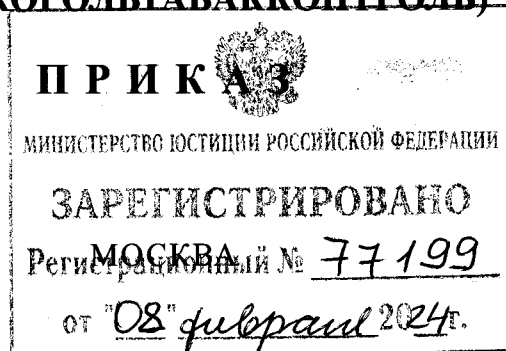 КОГОЛЬТАБАККОНТРОЛЬ)
ПРИКАЗ
МИНИСТЕРСТВО ЮСТИЦИИ РОССИЙСКОЙ ФЕДЕРАЦИИ
ЗАРЕГИСТРИРОВАНО
МОСКВА
Регистрационный № 77199
от "08" февраля 2024г.